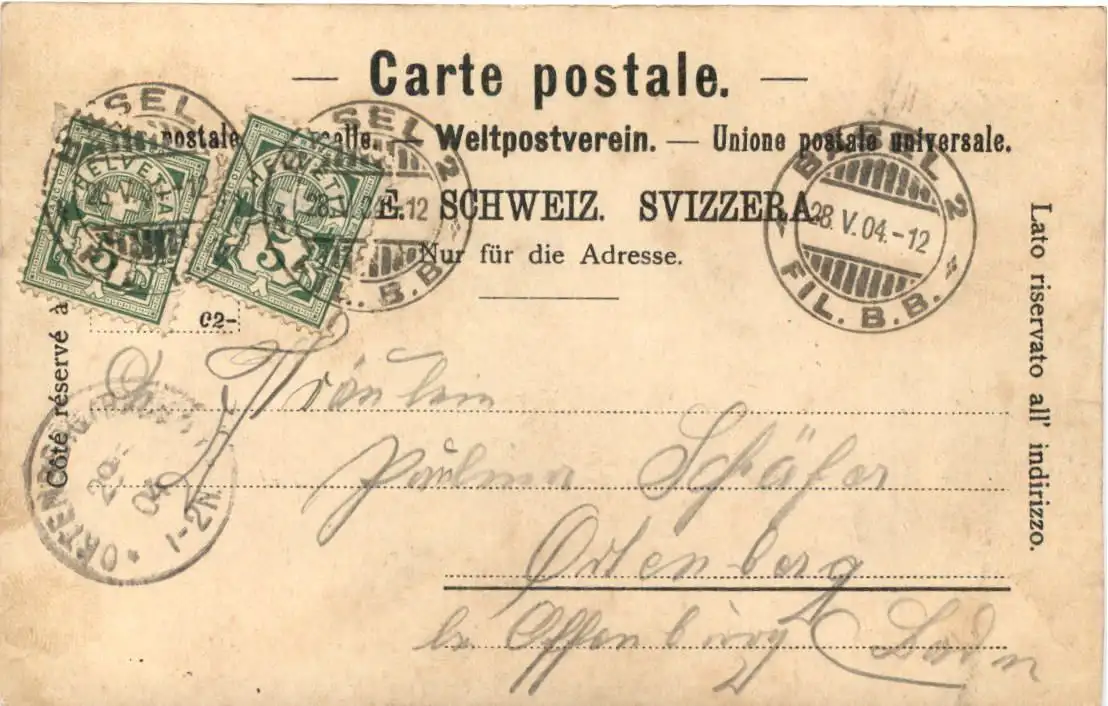 — Carte postale. —
postale — Weltpostverein. — Unione postale universale.
E. SCHWEIZ. SVIZZERA
Nur für die Adresse.
HELVETIA
5
HELVETIA
5
BASEL 2
28. V. 04.-12
FIL. B.B.
BASEL 2
28. -12
B.B.
BASEL
-12
02-
Côté réservé à
Lato riservato all' indirizzo.
ORTENBERG
29
04
1-2N.
Fräulein
Paulina Schäfer
Ortenberg
bei Offenburg Baden